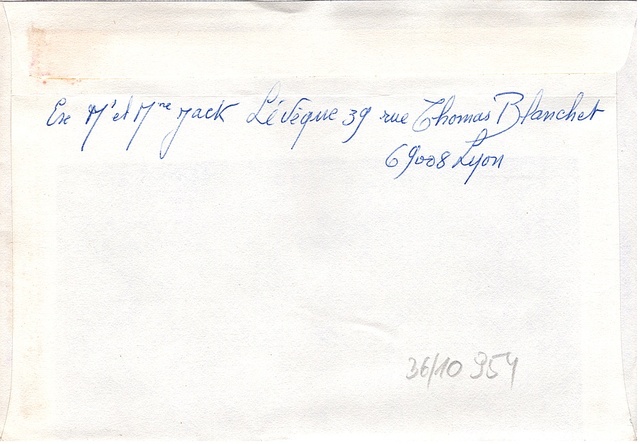 Ex Mr et Mme Jack Lévêque 39 rue Thomas Blanchet
69008 Lyon
36/10 954